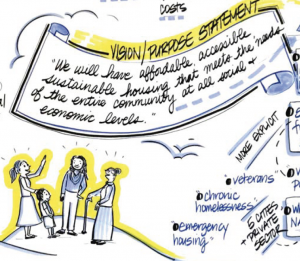 COSTS
VISION/PURPOSE STATEMENT
"We will have affordable accessible
sustainable housing that meets the needs
of the entire community at all social &
economic levels..."
MORE EXPLICIT
"veterans"
"chronic
homelessness"
"emergency
housing"
5 CITIES
+ PRIVATE
SECTOR